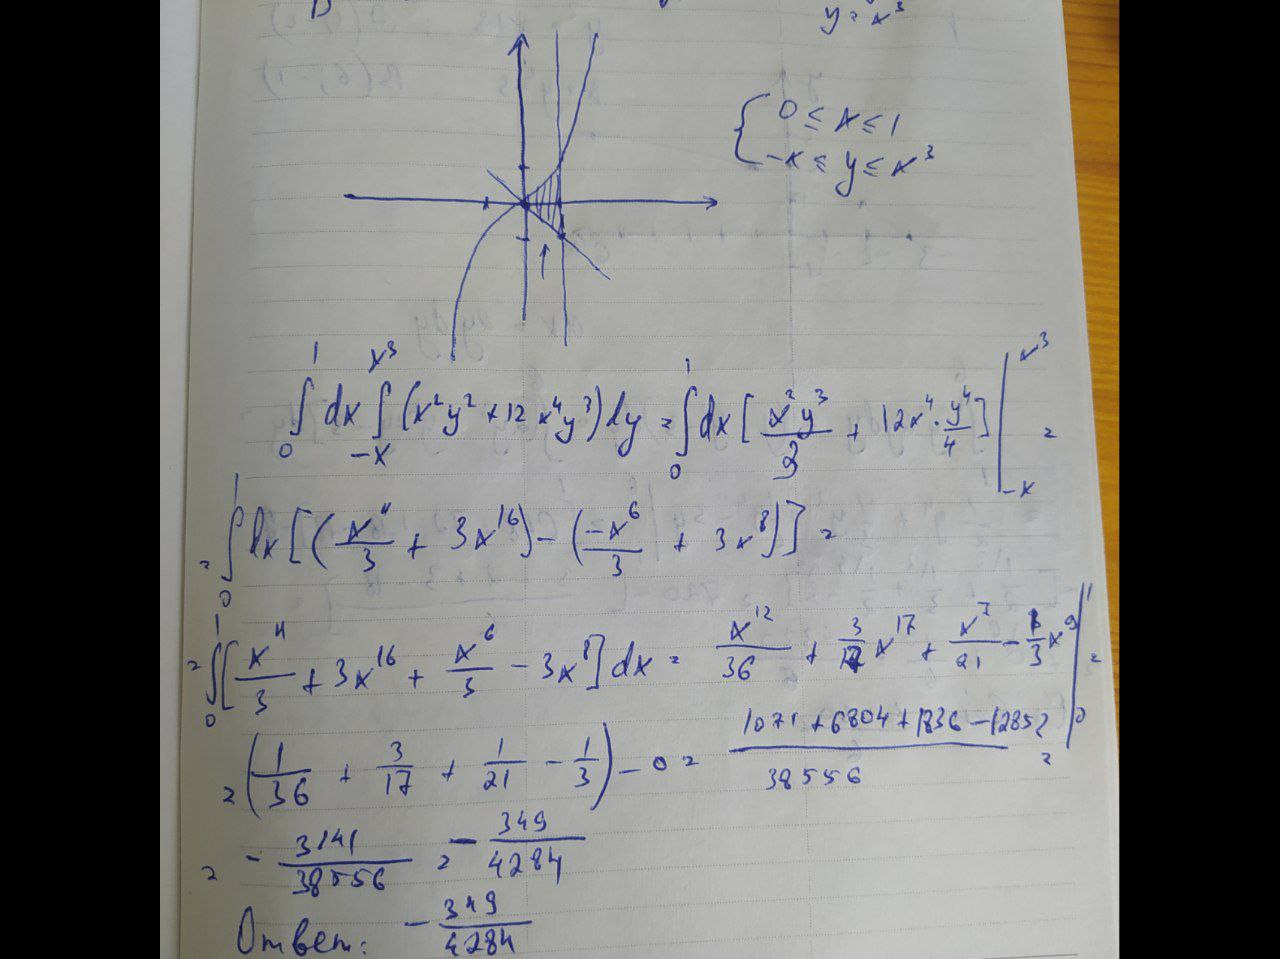 y = x³
{ 0 ≤ x ≤ 1
-x ≤ y ≤ x³
∫₀¹ dx ∫₋ₓ^x³ (x²y² + 12x⁴y³) dy = ∫₀¹ dx [x²y³/3 + 12x⁴ · y⁴/4] |₋ₓ^x³ =
= ∫₀¹ dx [(x¹¹/3 + 3x¹⁶) - (-x⁶/3 + 3x⁸)] =
= ∫₀¹ [x¹¹/3 + 3x¹⁶ + x⁶/3 - 3x⁸] dx = x¹²/36 + 3/17 x¹⁷ + x⁷/21 - 1/3 x⁹ |₀¹ =
= (1/36 + 3/17 + 1/21 - 1/3) - 0 = (1071 + 6804 + 1836 - 12852)/38556 =
= - 3141/38556 = - 349/4284
Ответ: - 349/4284